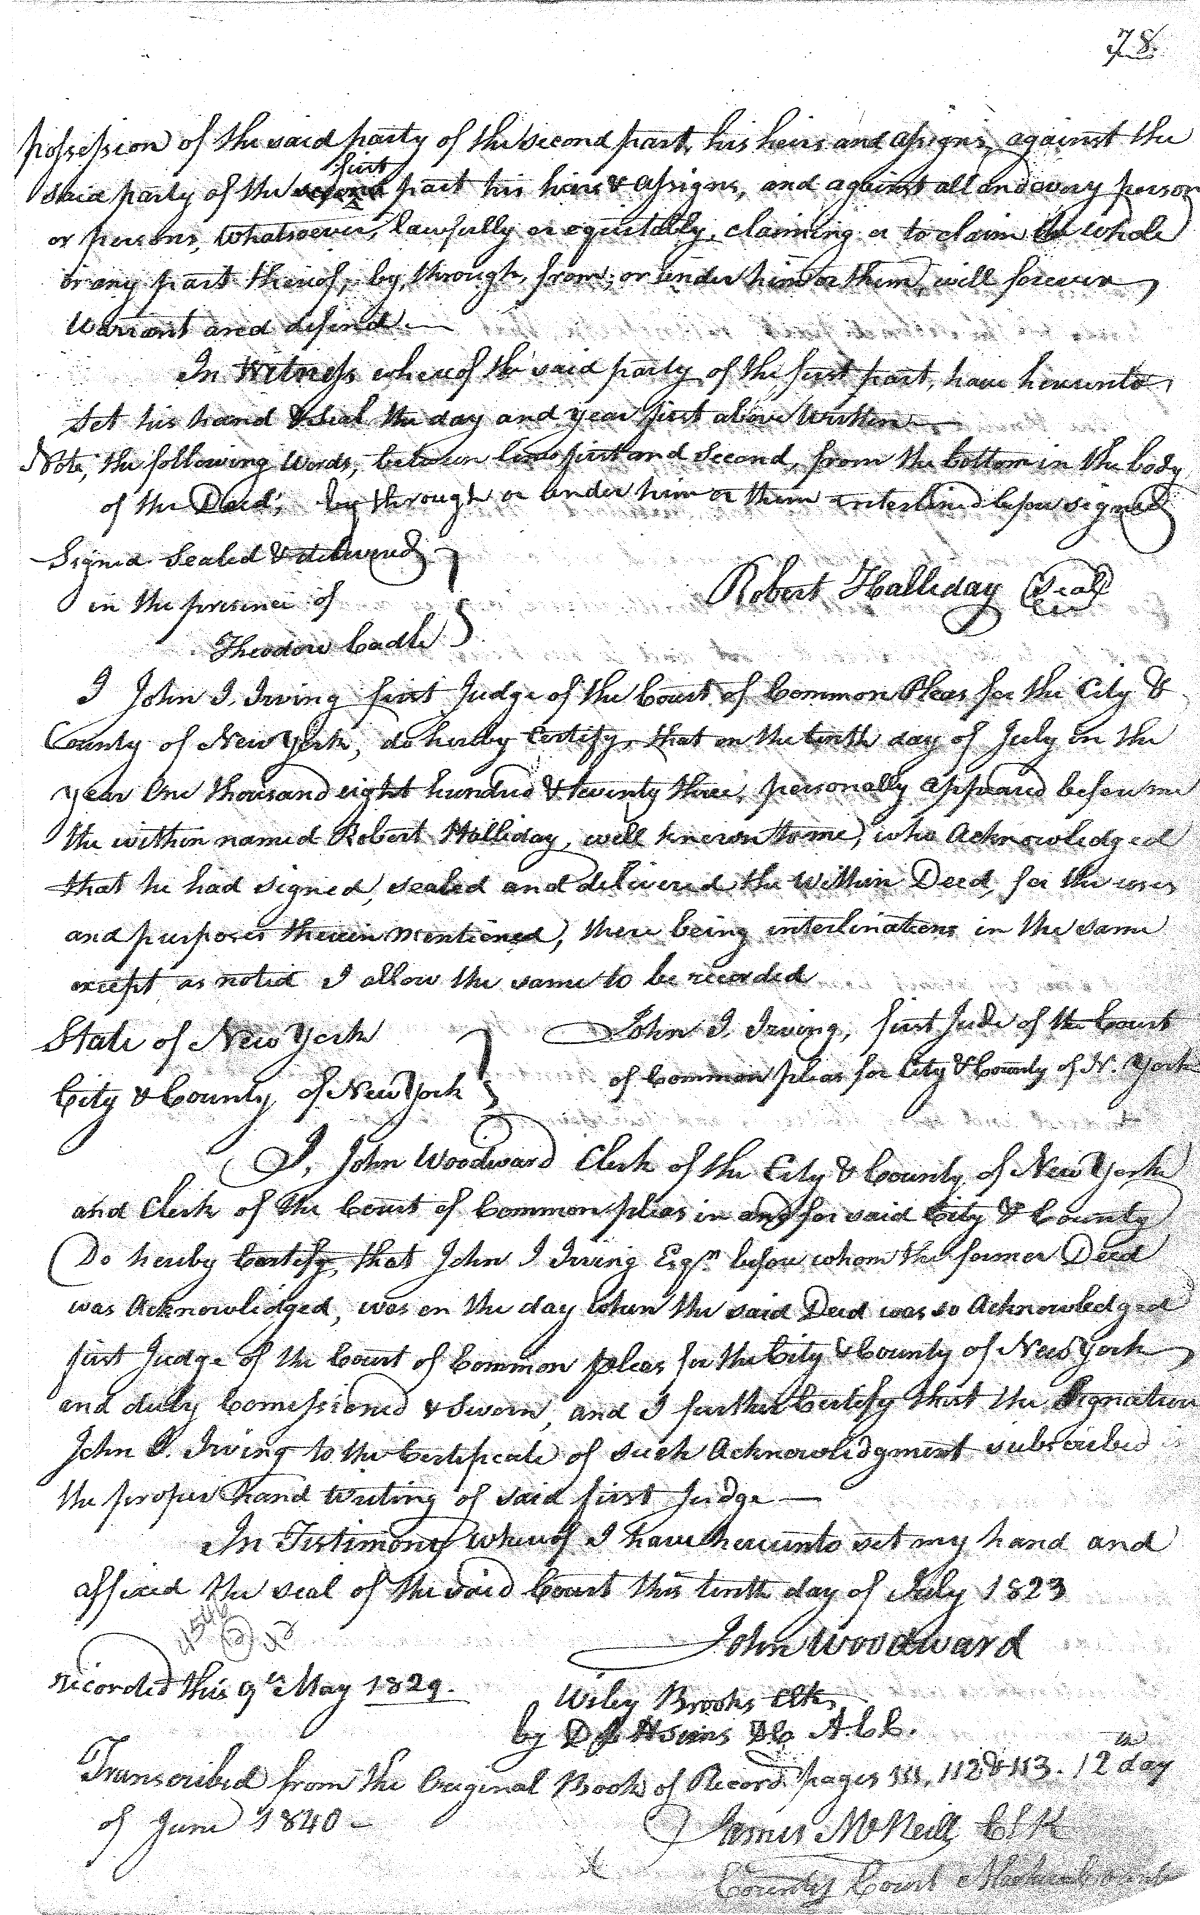 78.
possession of the said party of the second part, his heirs and assigns, against the
first
said party of the second part his heirs & assigns, and against all and every person
or persons, whatsoever, lawfully or equitably, claiming or to claim the whole
or any part thereof, by, through, from, or under him or them, will forever
Warrant and defend.—
In Witness whereof the said party of the first part, have hereunto
set his hand & seal the day and year first above Written—
Note, the following Words, between lines first and second, from the bottom in the body
of the Deed, by through or under him or them interlined before signed
Signed Sealed & delivered
in the presence of
Robert Halliday (Seal)
Theodore Cadle
I John I. Irving first Judge of the Court of Common Pleas for the City &
County of New York, do hereby Certify, that on the tenth day of July in the
year One thousand eight hundred & twenty three, personally appeared before me
the within named Robert Halliday, well known to me, who Acknowledged
that he had signed, sealed and delivered the Within Deed, for the uses
and purposes therein mentioned, there being interlinations in the same
except as noted I allow the same to be recorded
State of New York
City & County of New York
John I. Irving, first Jude of the Court
of Common pleas for City & County of N. York
I, John Woodward Clerk of the City & County of New York
and Clerk of the Court of Common pleas in and for said City & County
Do hereby Certify, that John I Irving Esqr. before whom the former Deed
was Acknowledged, was on the day when the said Deed was so Acknowledged
first Judge of the Court of Common pleas for the City & County of New York
and duly Comissioned & Sworn, and I further Certify that the Signature
John I. Irving to the Certificate of such Acknowledgment subscribed
the proper hand Writing of said first Judge—
In Testimony Whereof I have hereunto set my hand and
affixed the seal of the said Court this tenth day of July 1823
4546
(2) 42
John Woodward
recorded this 9th May 1829.
Wiley Brooks Clk,
by
Transcribed from the Original Book of Record pages 111, 112 & 113. 12th day
of June 1840—
James McNeill ClK
County Court